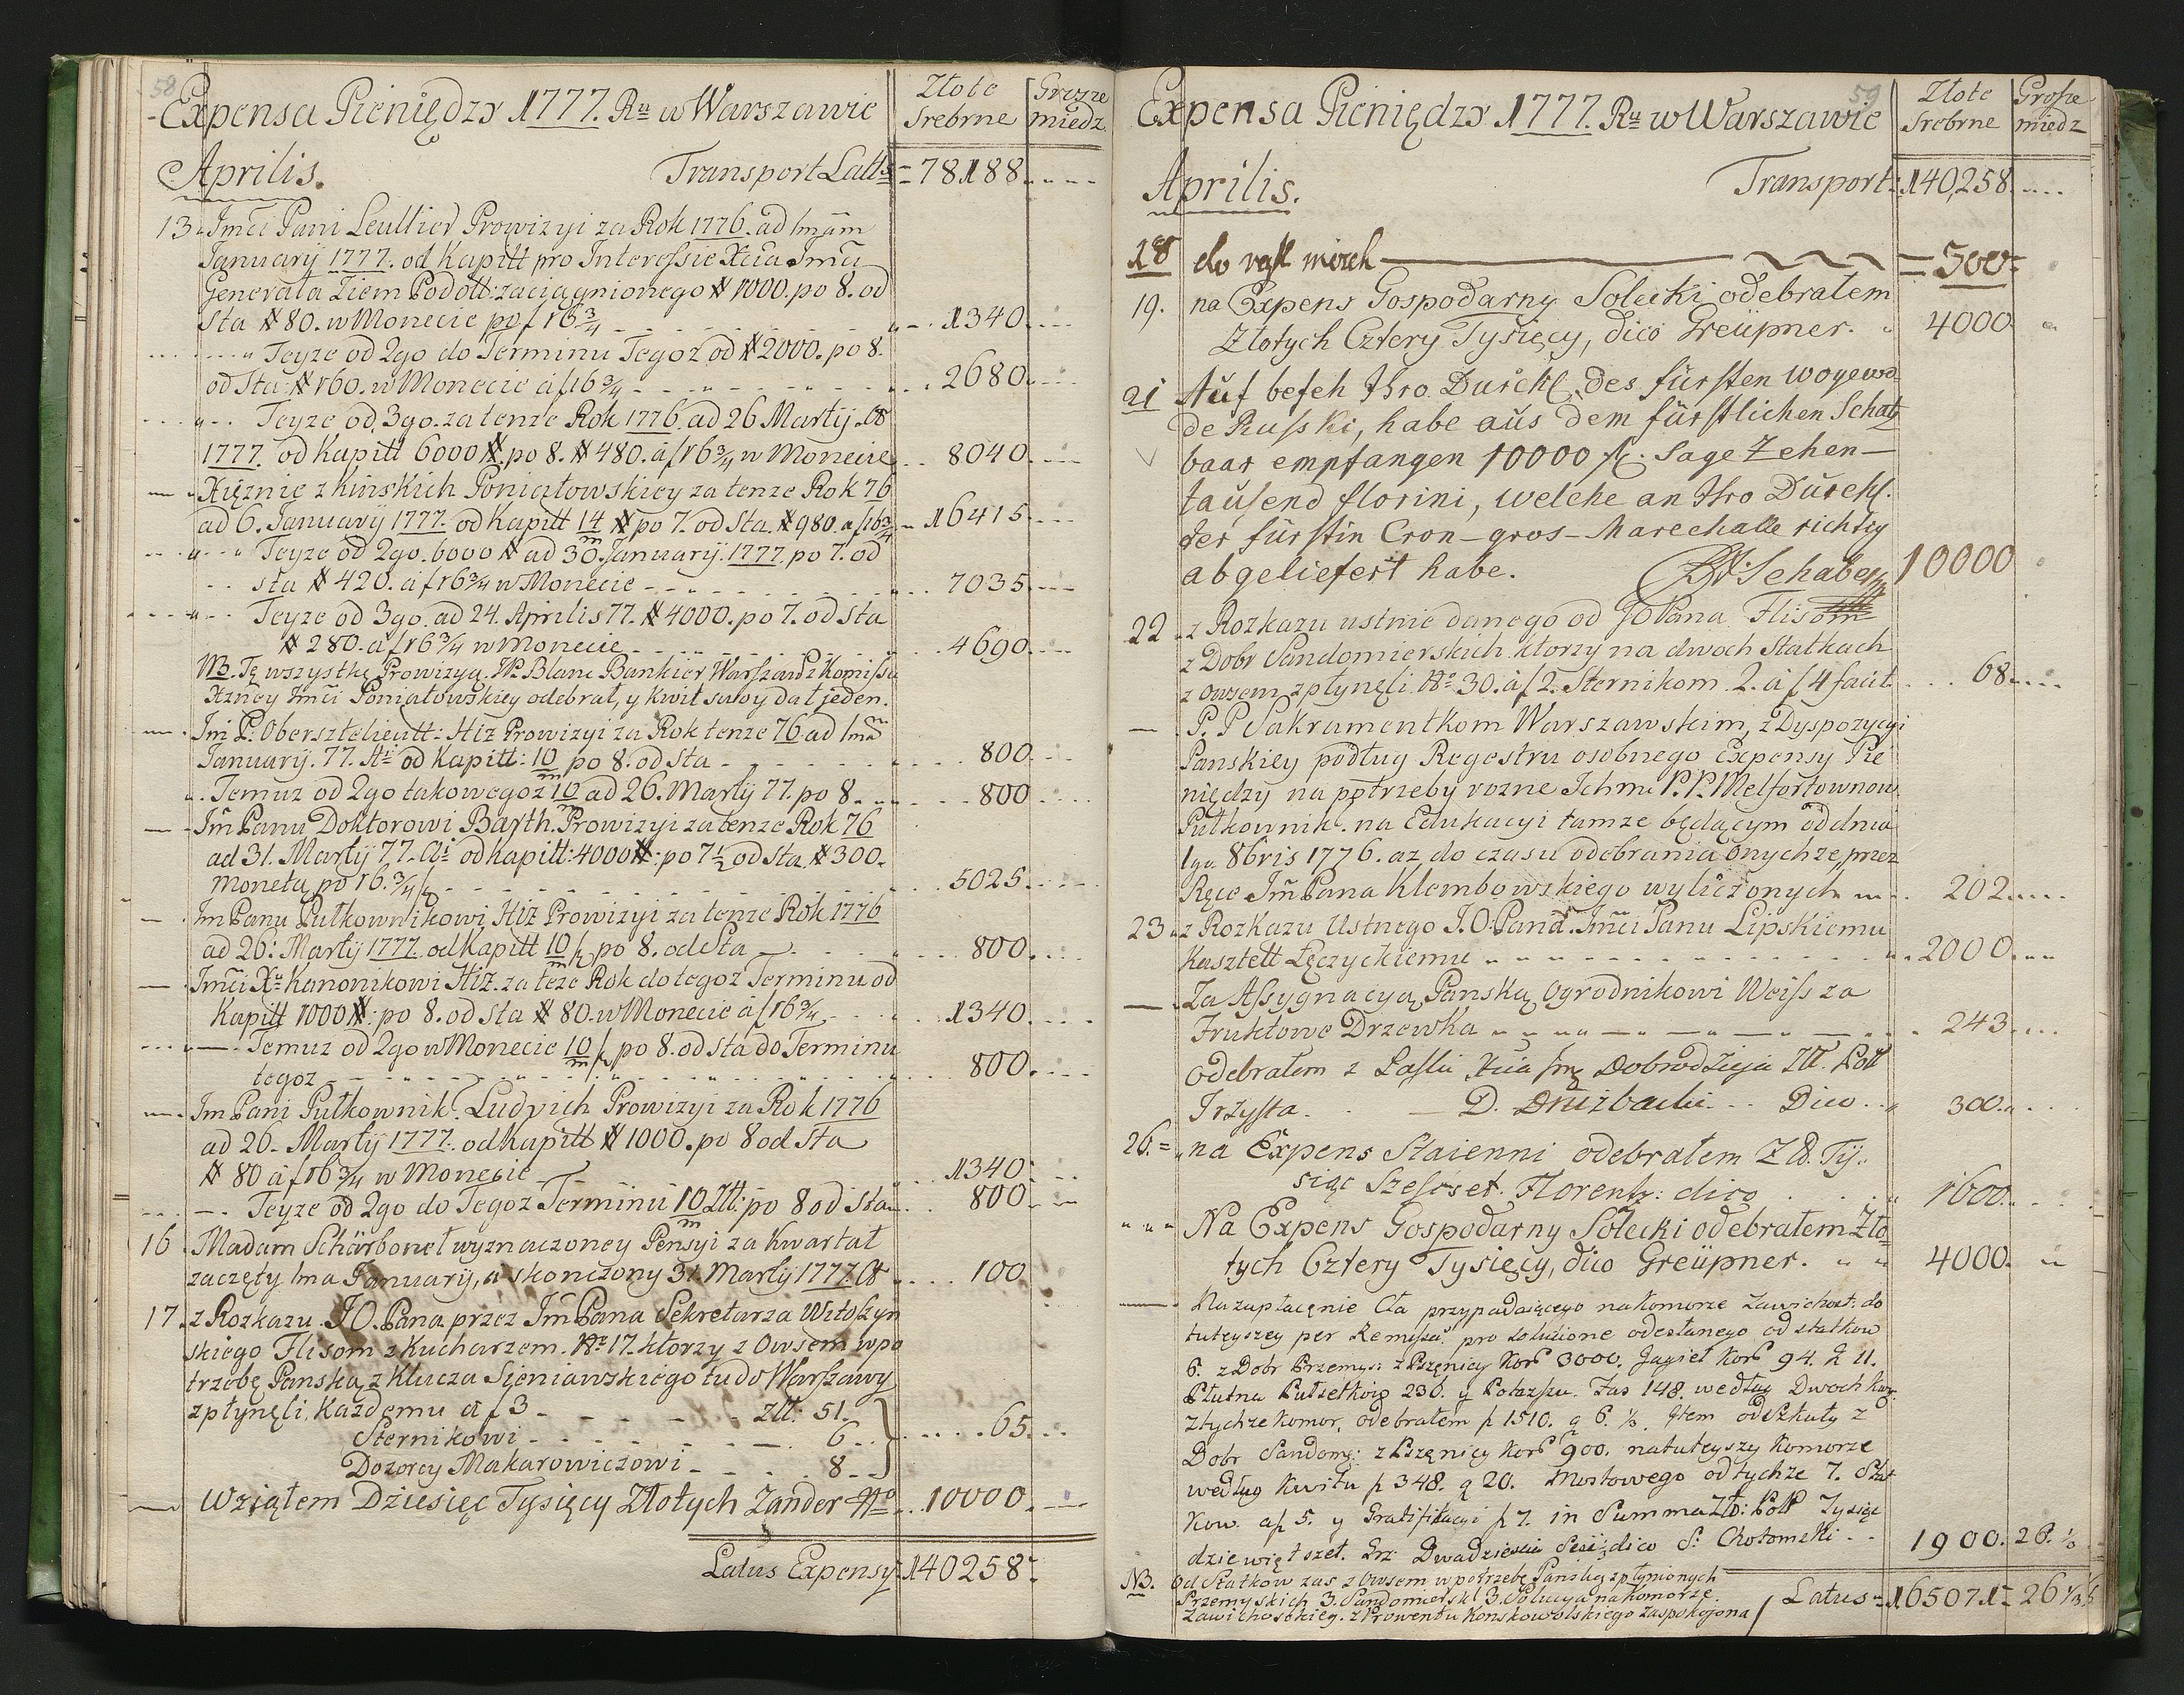 58
Expensa Pieniędzy 1777. Ru w Warszawie
Złote Srebrne
Grosze miedz
Aprilis.
Transport Latt = 78188
13 Jmci Pani Leullier Prowizyi za Rok 1776. ad 1mam
January 1777. od Kapitt pro Interessie Xcia Jmci
Generała Ziem Podoll: zaciągnionego # 1000. po 8. od
Sta # 80. w Monecie po f 16 3/4 1340.
Teyze od 2go do Terminu Tegoz od # 2000. po 8.
od Sta: # 160. w Monecie a f 16 3/4 2680.
Teyze od 3go. za tenze Rok 1776. ad 26 Martij
1777. od Kapitt 6000 #. po 8. # 480. a f 16 3/4 w Monecie 8040.
Xiężnie z Kinskich Poniatowskiey za tenze Rok 76
ad 6. January 1777. od Kapitt 14/m # po 7. od Sta. # 980. a f 16 3/4 16415.
Teyze od 2go. 6000 # ad 30. January. 1777. po 7. od
sta # 420. a f 16 3/4 w Monecie 7035.
Teyze od 3go. ad 24. Aprilis 77. # 4000. po 7. od sta
# 280. a f 16 3/4 w Monecie 4690.
NB. Tę wszystkę Prowizyą. JP. Blanc Bankier Warszaw: z Komissu
Xzney Jmci Poniatowskiey odebrał, y kwit swoy dał jeden.
Jm P. Obersztelieutt: Hiz Prowizyi za Rok tenze 76. ad 1ma
January. 77. od Kapitt: 10/m po 8. od sta 800.
Temuz od 2go takowegoz 10/m ad 26. Martij 77. po 8. 800
Jm Panu Doktorowi Barth. Prowizyi za tenze Rok 76
ad 31. Martij 77. od Kapitt: 4000 #: po 7 1/2 od Sta # 300.
Monetą po 16. 3/4 5025.
Jm Panu Pułkownikowi Hiz Prowizyi za tenze Rok 1776
ad 26: Martij 1777. od Kapitt 10/m po 8. od Sta 800.
Jmci Xu Kanonikowi Hiz. za teze Rok do tegoz Terminu od
Kapitt 1000 #: po 8. od sta # 80. w Monecie a f 16 3/4 1340.
Temuz od 2go w Monecie 10/m po 8. od sta do Terminu
tegoz 800.
Jm Pani Pułkownik. Ludvich Prowizyi za Rok 1776
ad 26. Martij 1777. od Kapitt # 1000. po 8 od Sta
# 80 a f 16 3/4 w Monecie 1340.
Teyze od 2go do Tegoz Terminu 10/m Zlt: po 8 od Sta 800.
16 Madam Schärbonet wyznaczoney Pensyi za Kwartał
zaczęty 1ma January, a skonczony 31. Martij 1777. 100
17. z Rozkazu J O. Pana przez Jm Pana Sekretarza Witoszyn
skiego Flisom z Kucharzem. Nr 17. ktorzy z Owsem w po
trzebę Panską z Klucza Sieniawskiego tu do Warszawy
zpłynęli, każdemu a f 3 Zlt: 51.
Sternikowi 6
65.
Dozorcy Makarowiczowi 8
Wziąłem Dziesięc Tysięcy Złotych Zander 10000.
Latus Expensy 140258
59
Expensa Pieniędzy 1777. Ru w Warszawie
Złote Srebrne
Grosze miedz
Aprilis.
Transport 140,258.
18 = 500
19. na Expens Gospodarny Solecki odebrałem
Złotych Cztery Tysięcy, dico Greüpner. 4000
21 Auf befeh Ihro Durchl. des fürsten Woyewo
de Russki, habe aus dem fürstlichen Schatz
baar empfangen 10000 fl. Sage Zehen-
tausend florini, welche an Ihro Durchl.
der fürstin Cron-gros-Marechalle richtig
abgeliefert habe. Schaber 10000
22 z Rozkazu ustnie danego od JO Pana Flisom
z Dobr Sandomierskich ktorzy na dwoch Statkach
z owsem zpłynęli. No 30. a f 2. Sternikom. 2. a f 4 facit 68.
P. P Sakramentkom Warszawskim, z Dyspozycyi
Panskiey podług Regestru osobnego Expensy Pie
niędzy na potrzeby rozne Jchm P. P. Melfortownow
Pułkownik. na Edukacyi tamze będącym od dnia
1go 8bris 1776. az do czasu odebrania onychze, przez
Ręce Jm Pana Klembowskiego wyliczonych 202.
23 z Rozkazu Ustnego J. O. Pana. Jmci Panu Lipskiemu
Kasztell Łęczyckiemu 2000.
Za Assygnacyą Panską Ogrodnikowi Weiss za
Fruktowe Drzewka 243
Odebrałem z Łaski Xcia Jm Dobrodzieja Zlt. Poll
Trzysta. D. Druzbacki Dico 300.
26. = na Expens Staienni odebrałem Zł. Ty
siąc Szesćset. Florentz: dico 1600.
Na Expens Gospodarny Solecki odebrałem Zło
tych Cztery Tysięcy, dico Greüpner. 4000.
Na zapłacenie Cła przypadaiącego na komorze Zawichost: do
tuteyszey per Remyssa pro solutione odesłanego od statkow
6. z Dobr Przemys: z Pszęnicy Kor 3000. Jagieł Kor 94. 11.
Płutna Pułsetkow 236. y Potaszu. Fas 148. według Dwoch Kw.
Ztychze Komor, odebrałem f 1510. g 6. 1/3. Item od Szkuty z
Dobr Sandom: z Pszęnicy Kor 900. na tuteyszy Komorze
według kwitu f 348. g 20. Mostowego od tychze 7. Stat
kow. a f 5. y Gratifikacyi f 7. in Summa Zlt: Poll Tysiąc
dziewięt szet. Grz Dwadziescia Sesc, dico S. Chotomski 1900. 26. 1/3
NB. Od Statkow zas z Owsem w potrzebę Panską zpłynionych
Przemyskich 3. Sandomiersk 3. Solucya na Komorze.
Zawichostskiey. z Prowentu Konskowolskiego zaspokojona
Latus = 165071 = 26 1/3